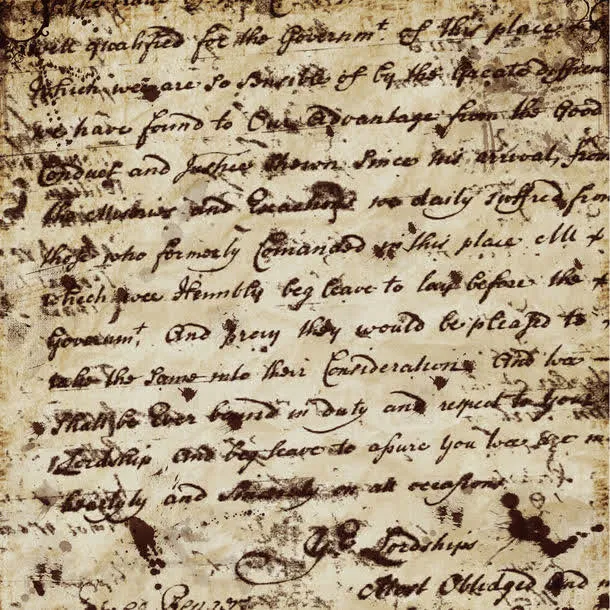 well qualified for the Governmt of this place
Which wee are so Sensible of by the Greate differen
we have found to Our Advantage from the Good
Conduct and Justice shown Since his arrival, from
the Miseries and Exactions we daily suffred from
those who formerly Comanded in this place All
which wee Humbly beg leave to lay before the
Governmt, And pray they would be pleased to
take the Same into their Consideration, And we
Shall be Ever bound in duty and respect to your
Lordship, and beg leave to assure You wee are
heartyly and Sincerely on all occasions
Lordships
Most Oblidged And